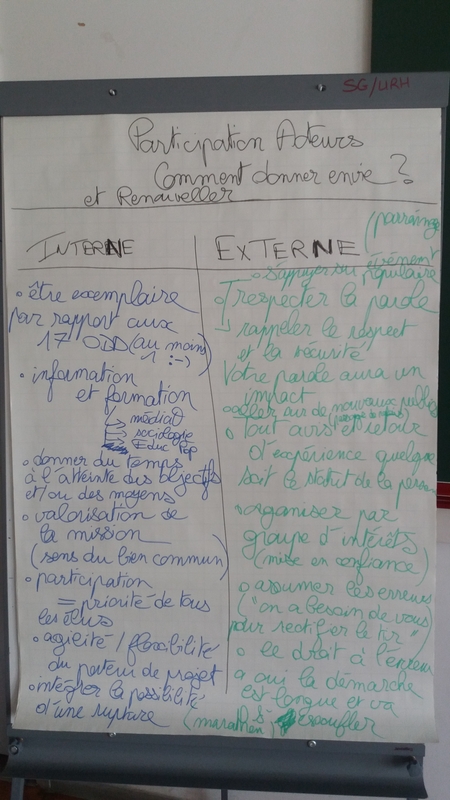 SG/URH
Participation Acteurs
Comment donner envie ?
et Renouveller
INTERNE
• être exemplaire
par rapport aux
17 ODD (au moins
1 :-)
• information
et formation
médiat
sociologie
Educ Pop
• donner du temps
à l'atteinte des objectifs
et/ou des moyens
• valorisation de
la mission
(sens du bien commun)
• participation
= priorité de tous
les élus
• agilité / flexibilité
du porteur de projet
• intégrer la possibilité
d'une rupture
EXTERNE
(parrainage
• s'appuyer su évènement
populaire
respecter la parole
→ rappeler le respect
et la sécurité
Votre parole aura un
impact
• aller sur de nouveaux publics
• Tout avis et retour
d'expérience quelque
soit le statut de la person
• organiser par
groupe d'intérêts
(mise en confiance)
• assumer les erreurs
("on a besoin de vous
pour rectifier le tir")
• le droit à l'erreur
• oui la démarche
est longue et va
s'essoufler
(marathon)